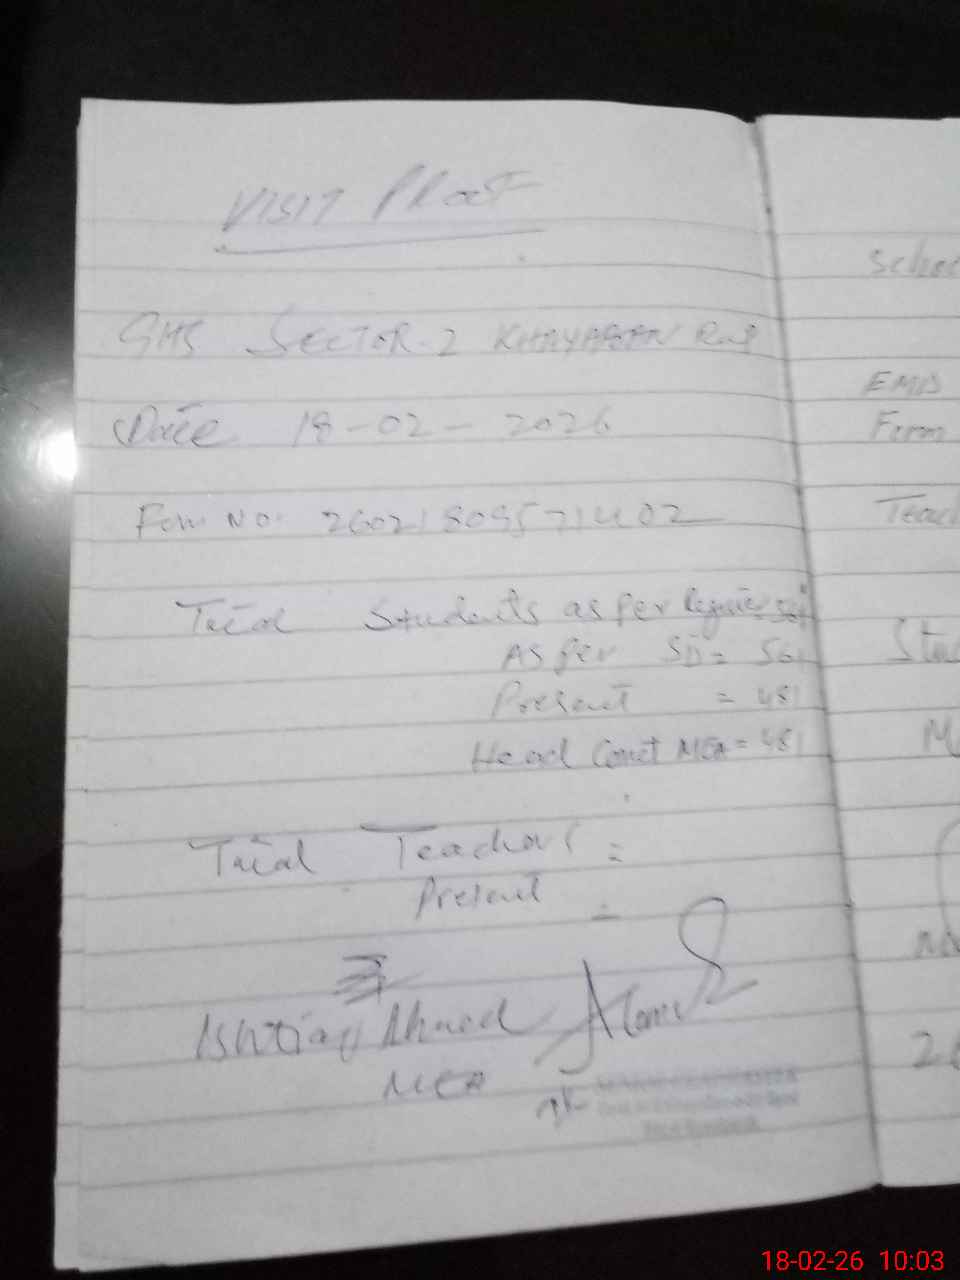 VISIT PROOF
GHS SECTOR-2 KHAYABAN
Date 18-02-2026
Form No. 26021809571402
Total Students as per Register
As per SD = 561
Present = 481
Head Count MEA = 481
Total Teachers =
Present =
Ishtiaq Ahmed
MEA
School
EMIS
Form
Teach
Stud
18-02-26 10:03